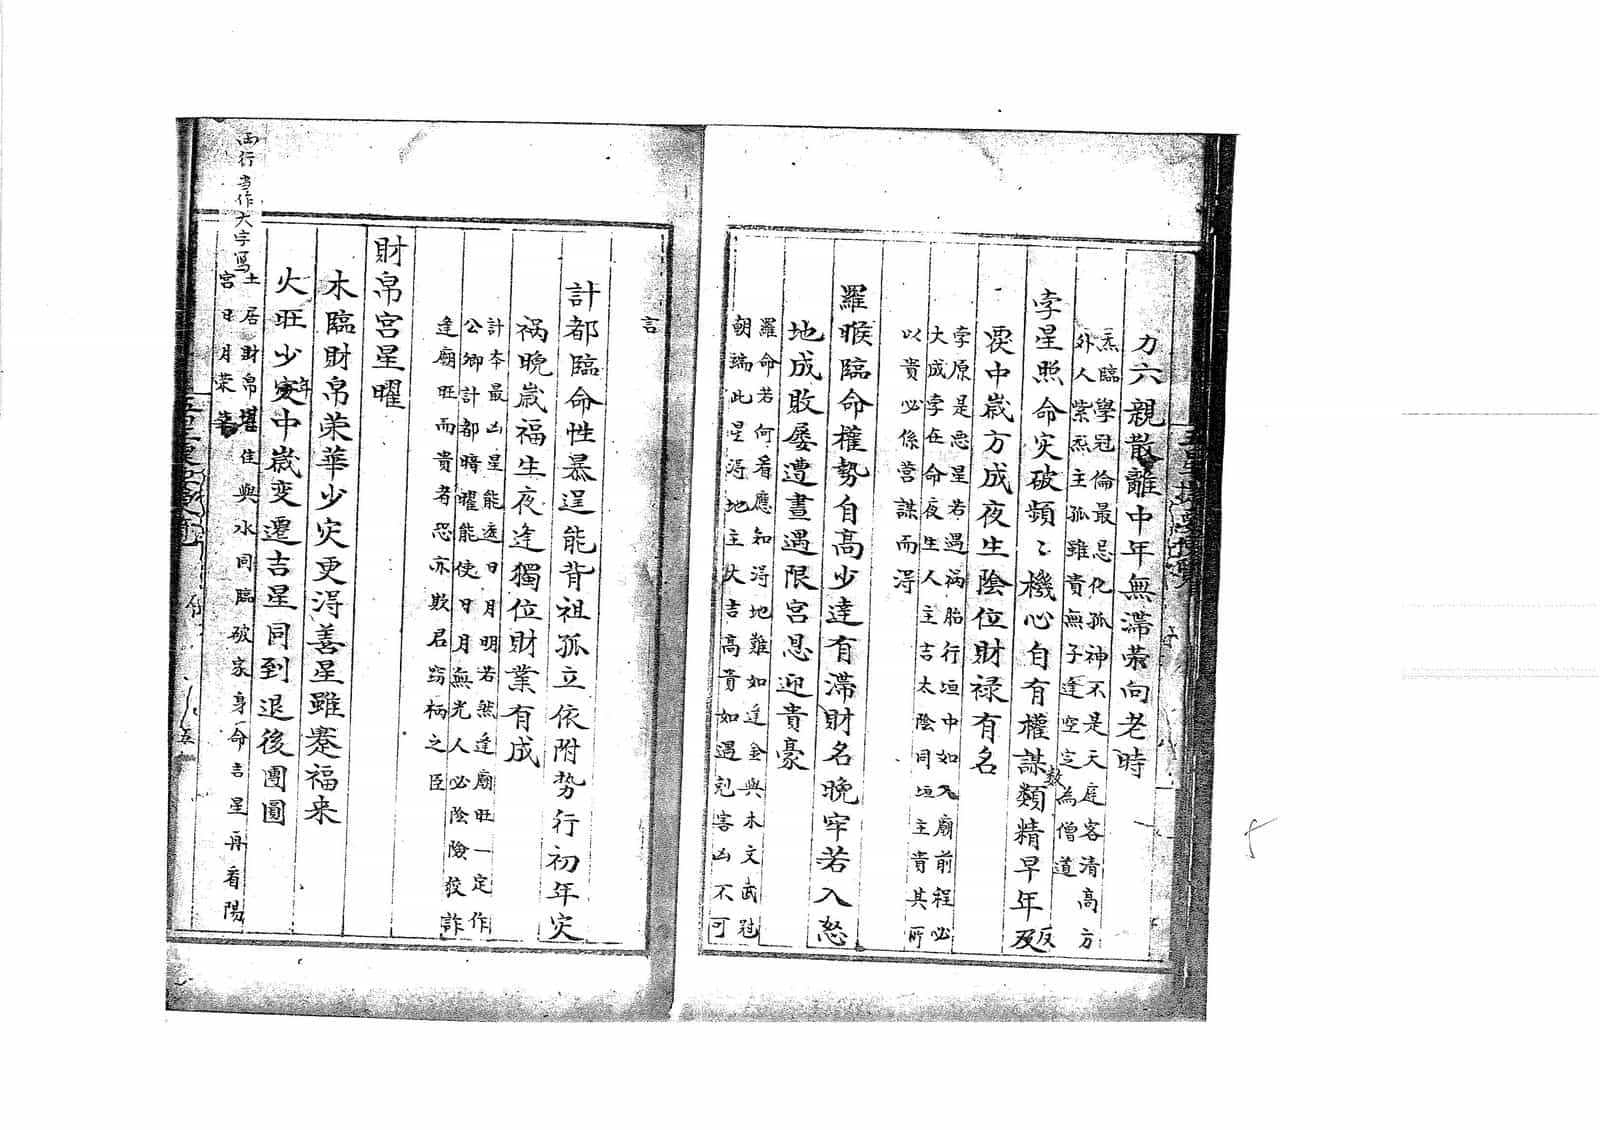 力六親散離中年無滯荣向老時
炁臨學冠倫最忌化孤神不是天庭客清高方
外人紫炁主孤雖貴無子逢空定為僧道
孛星照命灾破頻〻機心自有權謀類精早年反
數
反
覆中歲方成夜生陰位財禄有名
孛原是悪星若遇禍胎行垣中如入廟前程必
大成孛在命夜生人主吉太陰同垣主貴其所
以貴必係营謀而淂
羅㬋臨命權勢自高少達有滯財名晚牢若入怒
地成敗屡遭晝遇限宮恩迎貴豪
羅命若何看應知淂地難如逢金與木文武冠
朝端此星淂地主大吉高貴如遇剋害凶不可
言
計都臨命性暴逞能背祖孤立依附势行初年灾
禍晚歲福生夜逢獨位財業有成
計本最凶星能遮日月明若然逢廟旺一定作
公卿計都暗曜能使日月無光人必陰險狡詐
逢廟旺而貴者恐亦欺君窃柄之臣
財帛宮星曜
木臨財帛荣華少灾更淂善星雖蹇福来
火旺少年灾中歲变遷吉星同到退後團圓
土居財帛堪佳與水同臨破家身命吉星再看陽
宮日月荣
两行当作大字写